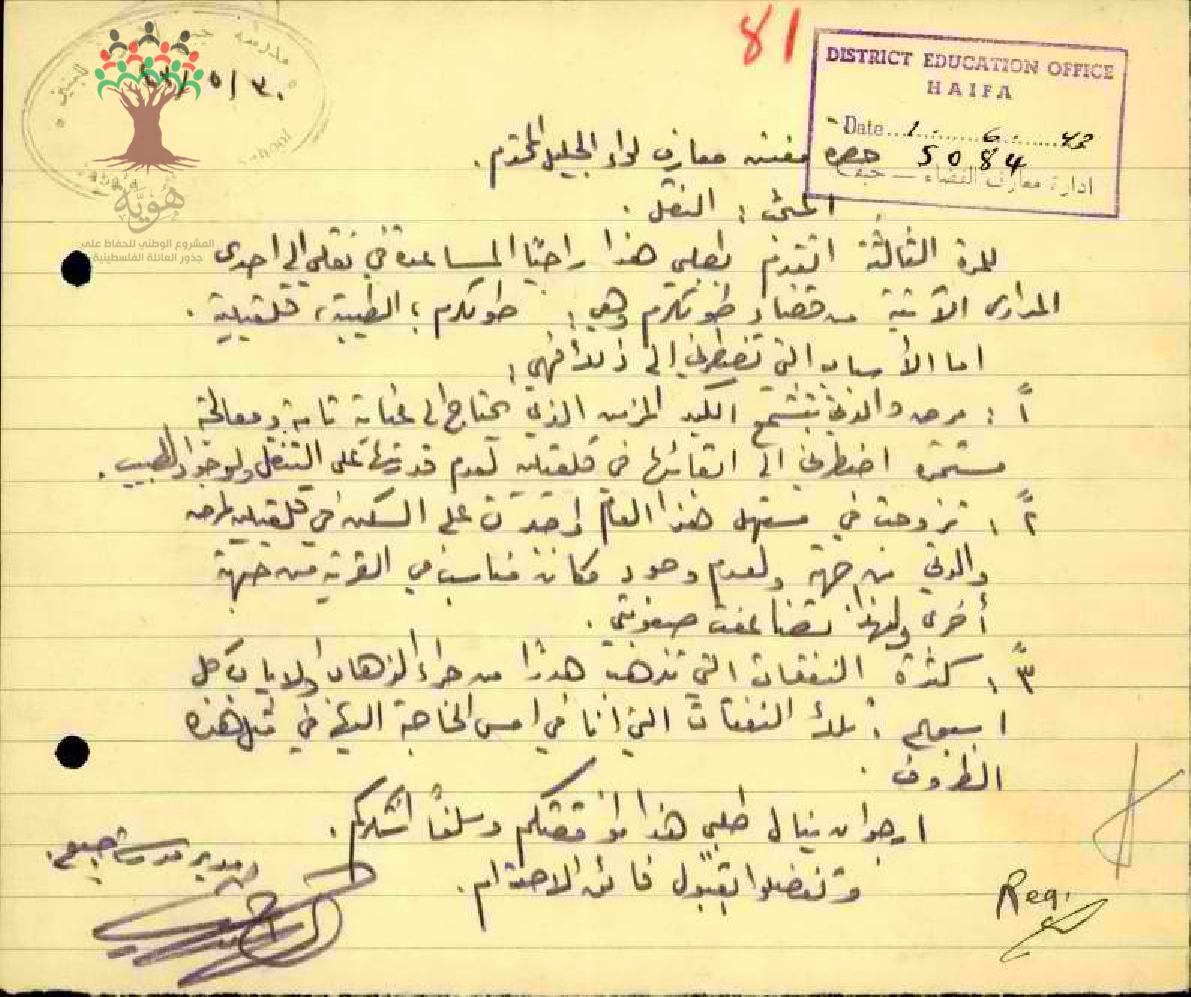 81
DISTRICT EDUCATION OFFICE
HAIFA
Date 1. 6. 43
5084
ادارة معارف القضاء — حيفا
٤٣/٥/٣٠
هوية
المشروع الوطني للحفاظ على
جذور العائلة الفلسطينية
حضرة مفتش معارف لواء الجليل المحترم.
النقل.
للمرة الثالثة اتقدم بطلبي هذا راجيًا المساعدة في نقلي الى احدى
المدارس الآتية من قضاء طولكرم وهي: طولكرم، الطيبة، قلقيلية.
اما الأسباب التي تضطرني الى ذلك فهي:
١: مرض والدتي الكبد المزمن الذي يحتاج الى عناية تامة ومعالجة
مستمرة اضطرني الى ابقائها في قلقيلية لعدم قدرتها على التنقل ولوجود الطبيب.
٢: تزوجت في مستهل هذا العام على السكن في قلقيلية لمرض
والدتي من جهة ولعدم وجود مكان مناسب في القرية من جهة
أخرى ولهذا تضاعفت صعوبتي.
٣: كثرة النفقات التي تذهب هدرًا من جراء الذهاب والاياب كل
اسبوع. تلك النفقات التي أنا في امس الحاجة اليها في مثل هذه
الظروف.
ارجو ان ينال طلبي هذا موافقتكم وسلفًا اشكركم.
وتفضلوا بقبول فائق الاحترام.
مدير مدرسة جبع
Reg.